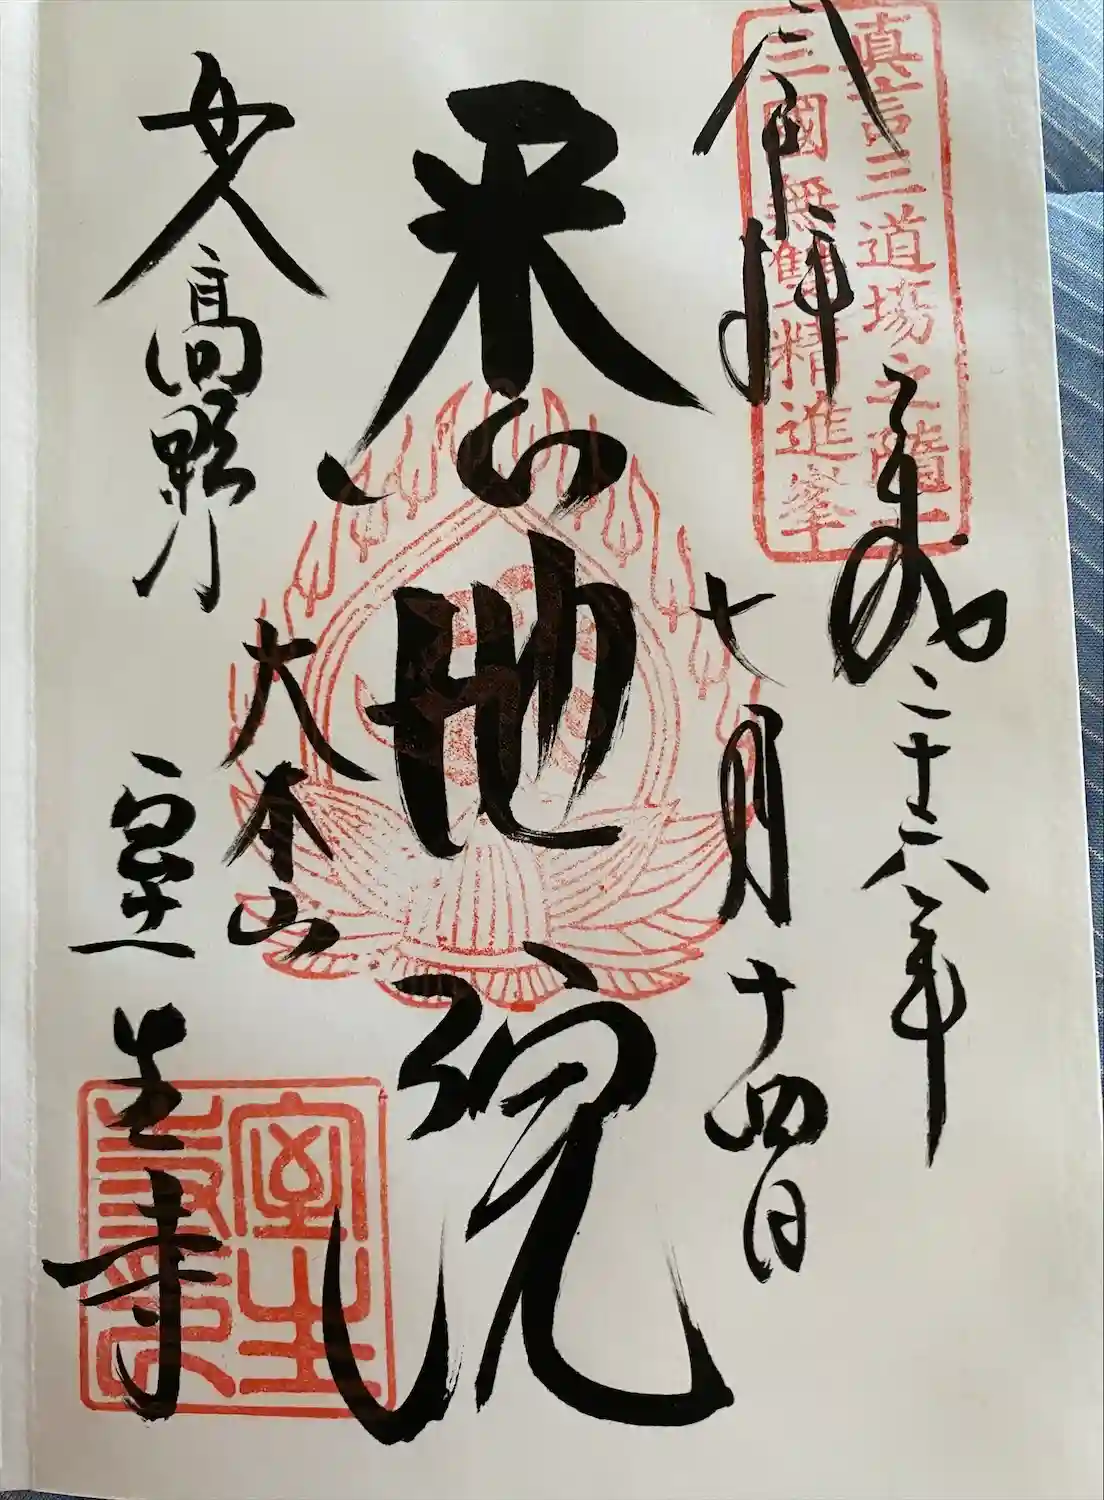 真言三道場之隨一
三國無雙精進峯
奉拝
平成二十六年
七月十四日
悉地院
女人高野
大本山
室生寺
室生
寺印